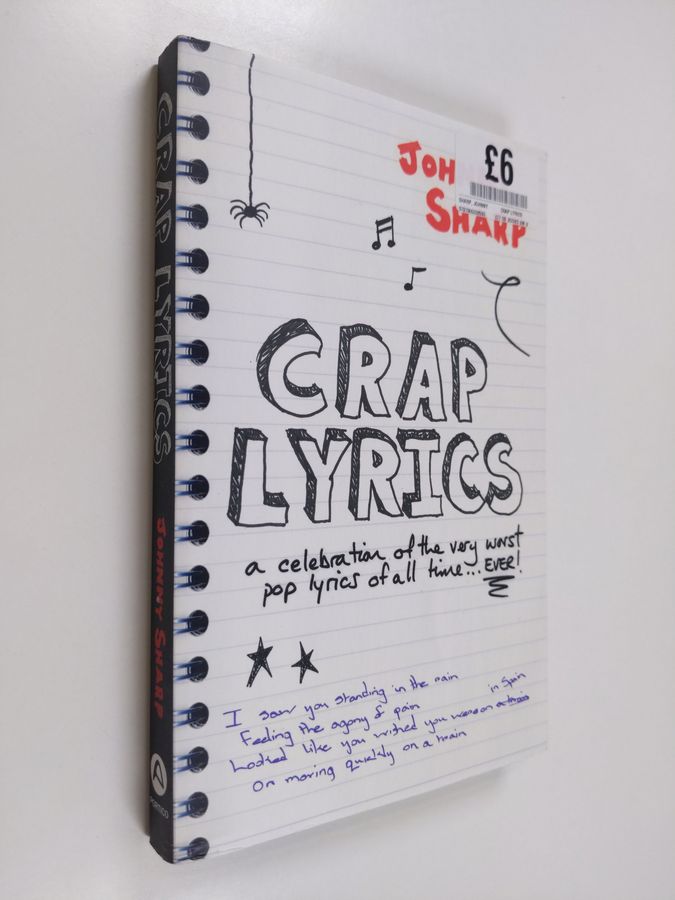 CRAP LYRICS JOHNNY SHARP
PORTICO
JOH
£6
SHARP, JOHNNY CRAP LYRICS
SHARP
CRAP
LYRICS
a celebration of the very worst
pop lyrics of all time... EVER!
I saw you standing in the rain
Feeling the agony & pain in Spain
Looked like you wished you were on
Or moving quickly on a train